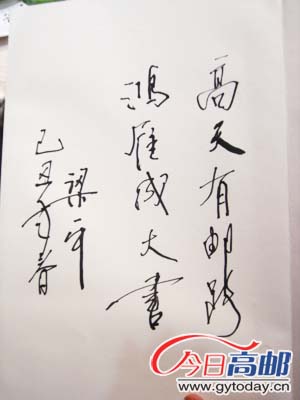 高天有邮路
鸿雁成大书
梁平
己丑年春
今日高邮
www.gytoday.cn